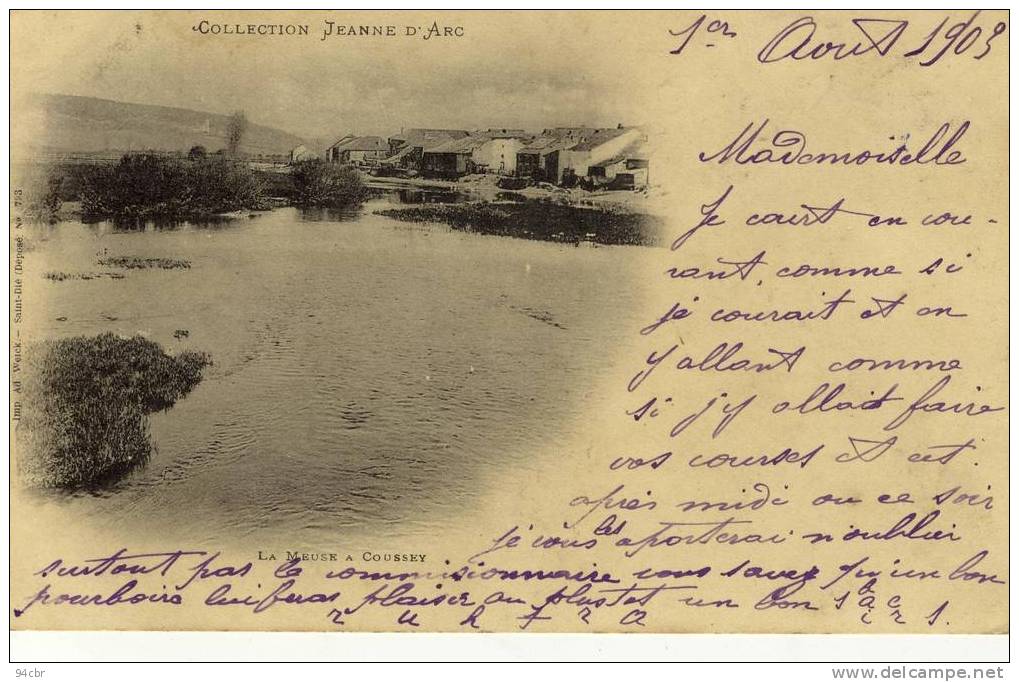 Collection Jeanne d'Arc
1er Aout 1903
Mademoiselle
Je court en cou-
rant, comme si
je courait et en
y allant comme
si j'y allait faire
vos courses et cet.
après midi ou ce soir
je vous les aporterai n'oublier
surtout pas le commisionnaire vous savez qu'un bon
pourboire lui feras plaisir ou plustot un bon
La Meuse a Coussey
Imp. Ad. Weick. — Saint-Dié (Déposé No 733
94cbr
www.delcampe.net